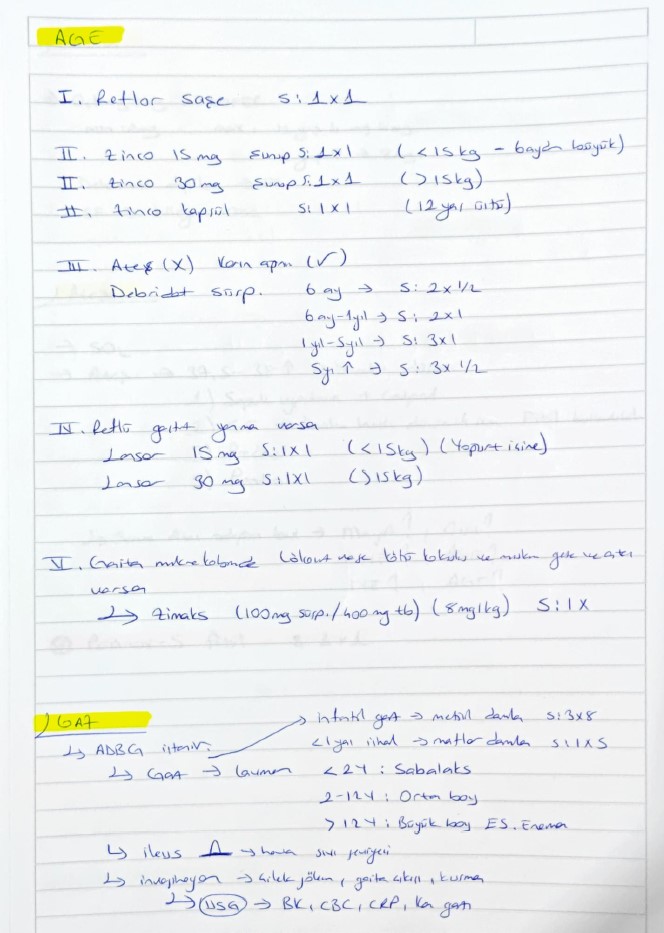 AGE
I. Reflor saşe S: 1x1
II. Zinco 15 mg şurup S: 1x1 (<15kg - 6aydan büyük)
II. Zinco 30 mg şurup S: 1x1 (>15kg)
II. Zinco kapsül S: 1x1 (12 yaş üstü)
III. Ateş (X) Karın ağrısı (✓)
Debridat sürp. 6 ay → S: 2x1/2
6 ay-1yıl → S: 2x1
1yıl-5yıl → S: 3x1
5yı ↑ → S: 3x 1/2
IV. Reflü gastrit yanma varsa
Lansor 15 mg S: 1x1 (<15kg) (Yoğurt içine)
Lansor 30 mg S: 1x1 (>15kg)
V. Gaita lökosit veya kötü kokulu ve ateş
varsa
↳ Zimaks (100mg sürp./400mg tb) (8mg/kg) S: 1x
GAZ
↳ ADBG istenir. → infantil gaz → metsil damla S: 3x8
<1 yaş ishal → maflor damla S: 1x5
↳ Gaz → lavman <2Y : Sabalaks
2-12Y : Orta boy
>12Y : Büyük boy ES. Enema
↳ ileus → hava sıvı seviyesi
↳ invajinasyon → çilek jölesi, gaita çıkışı, kusma
↳ USG → BK, CBC, CRP, Kan gazı